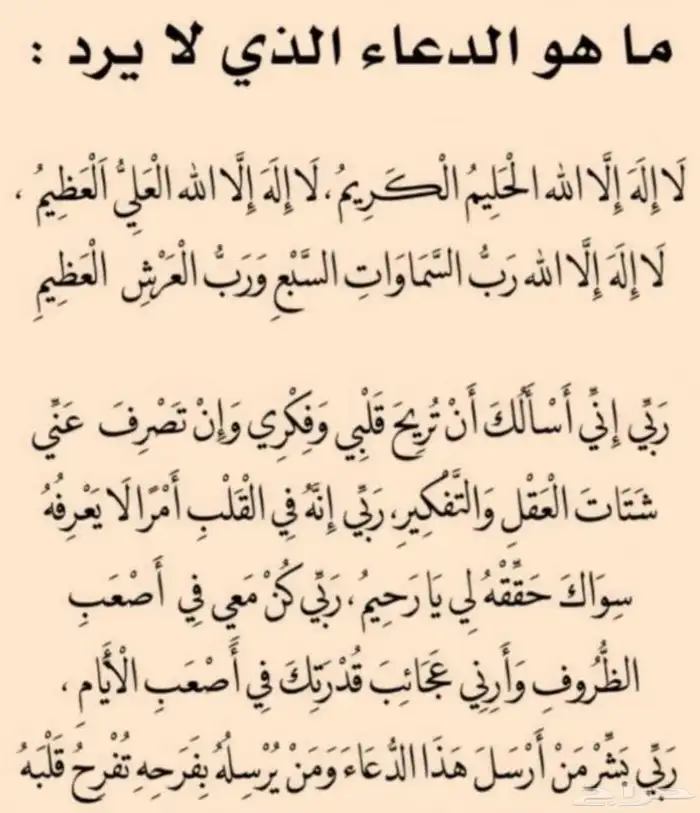 ما هو الدعاء الذي لا يرد :
لَا إِلَهَ إِلَّا الله الْحَلِيمُ الْكَرِيمُ، لَا إِلَهَ إِلَّا الله الْعَلِيُّ الْعَظِيمُ ،
لَا إِلَهَ إِلَّا الله رَبُّ السَّمَاوَاتِ السَّبْعِ وَرَبُّ الْعَرْشِ الْعَظِيمِ
رَبِّي إِنِّي أَسْأَلُكَ أَنْ تُرِيحَ قَلْبِي وَفِكْرِي وَإِنْ تَصْرِفَ عَنِّي
شَتَاتَ الْعَقْلِ وَالتَّفْكِيرِ، رَبِّي إِنَّهُ فِي الْقَلْبِ أَمْرًا لَا يَعْرِفُهُ
سِوَاكَ حَقِّقْهُ لِي يَا رَحِيمُ، رَبِّي كُنْ مَعِي فِي أَصْعَبِ
الظُّرُوفِ وَأَرِنِي عَجَائِبَ قُدْرَتِكَ فِي أَصْعَبِ الْأَيَّامِ ،
رَبِّي بَشِّرْ مَنْ أَرْسَلَ هَذَا الدُّعَاءَ وَمَنْ يُرْسِلُهُ بِفَرَحِهِ تُفْرِحُ قَلْبَهُ
حراج